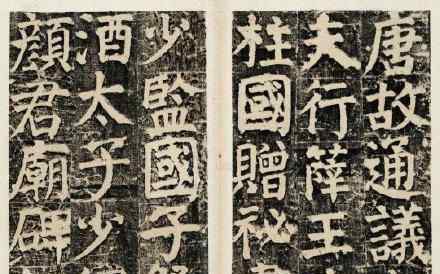 唐故通議
夫行薛王
柱國贈祕
少監國子
酒太子少
顏君廟碑